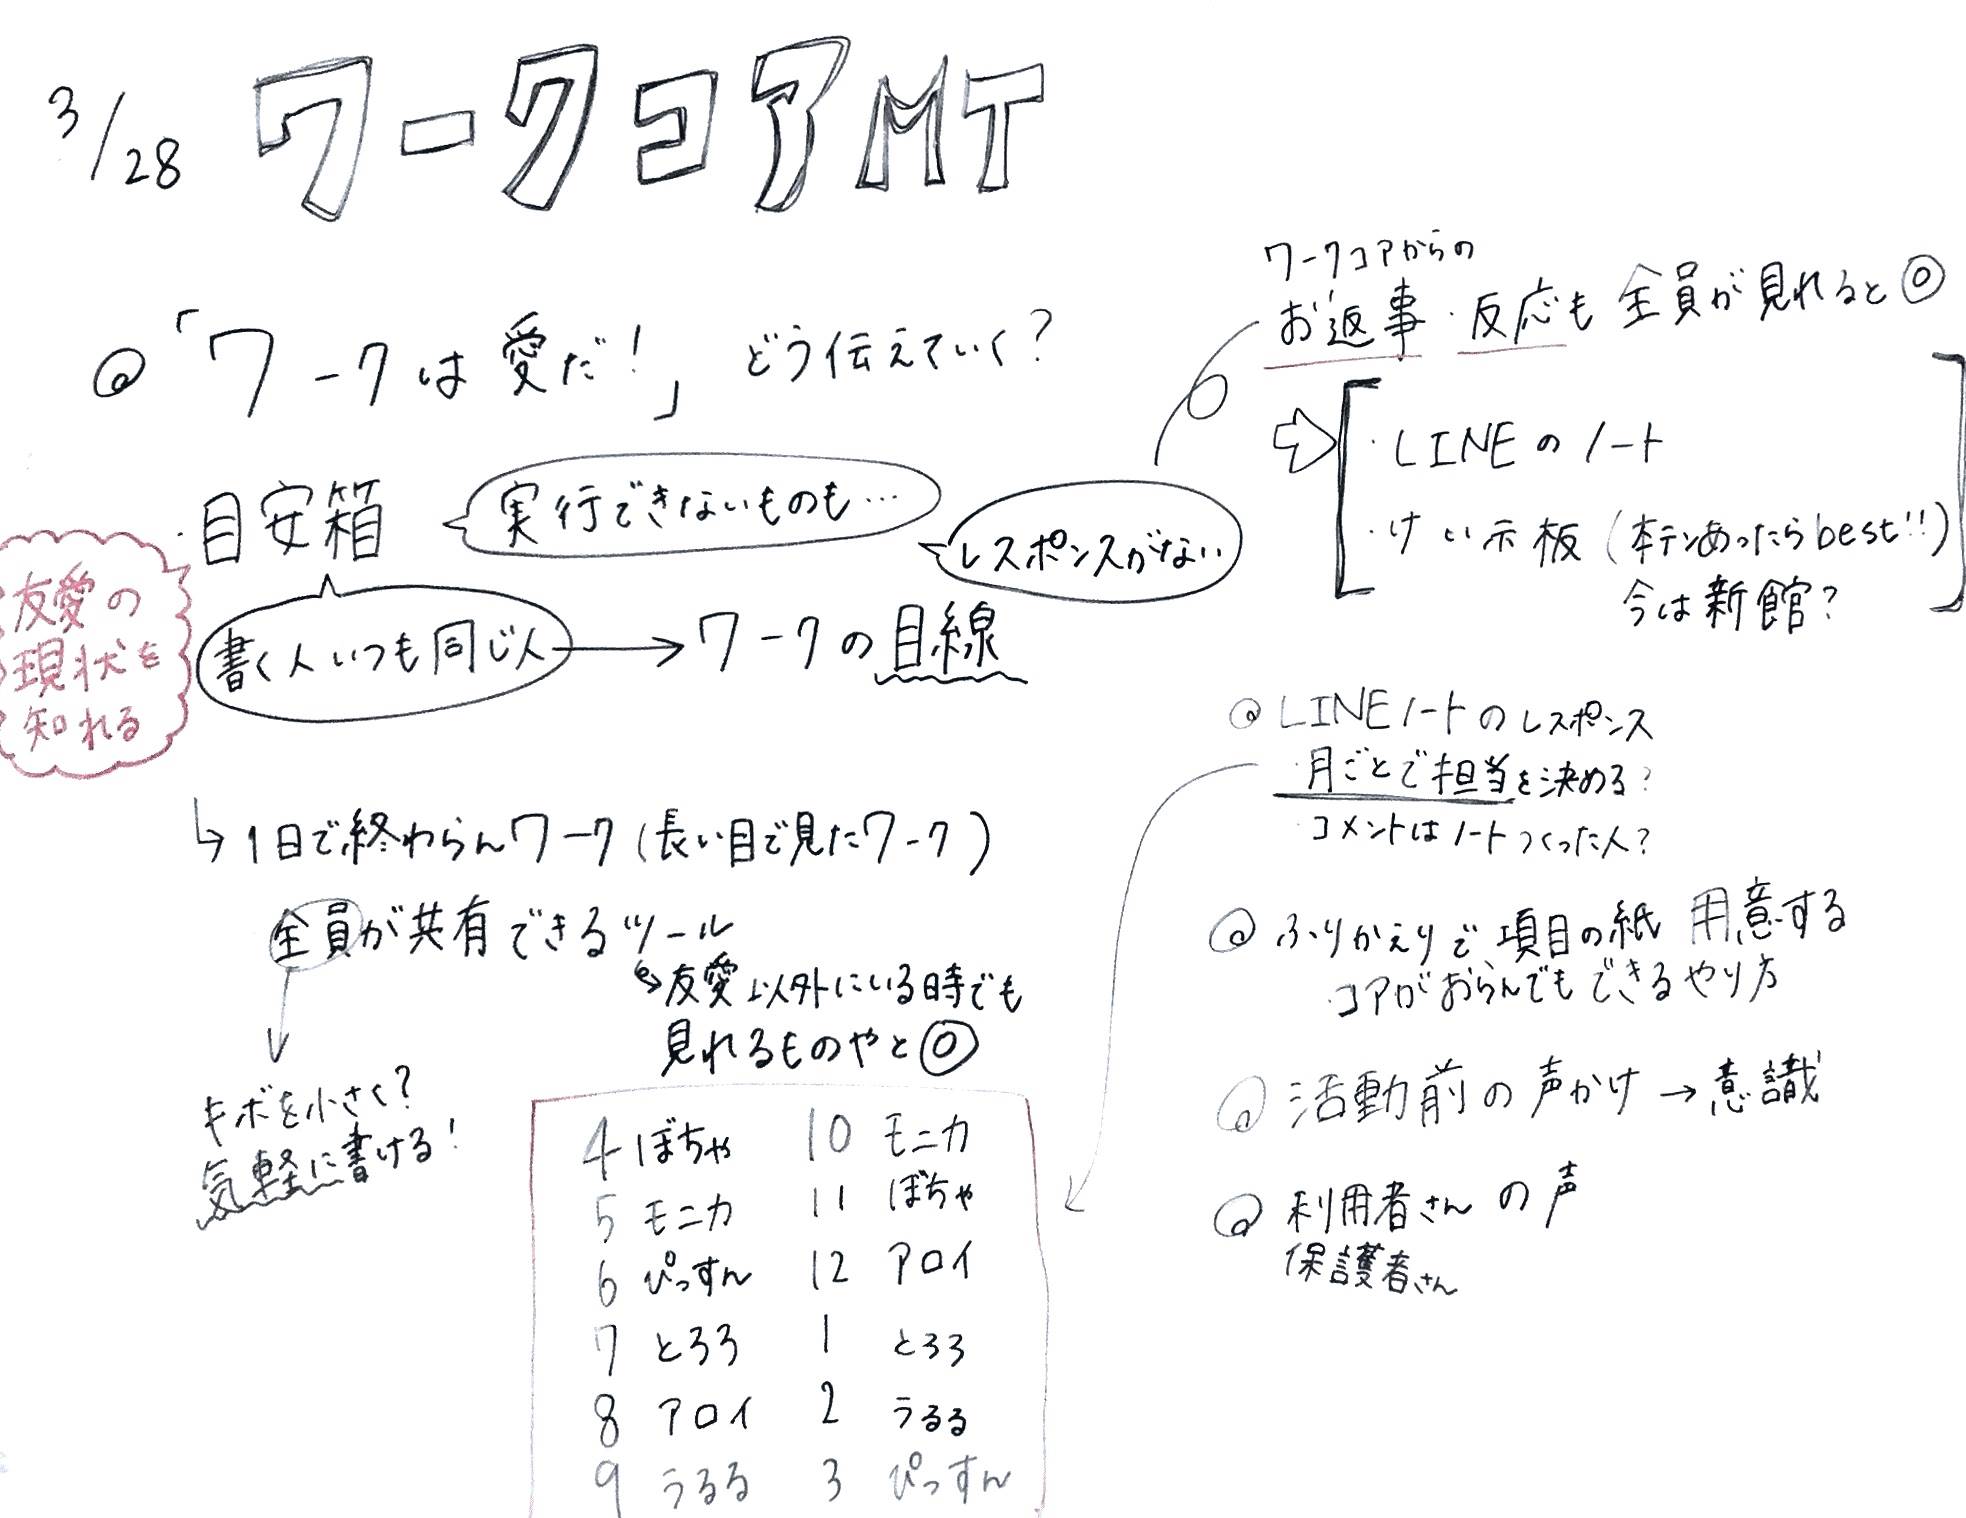 3/28 ワークコアMT
@「ワークは愛だ!」どう伝えていく?
・目安箱
実行できないものも…
レスポンスがない
書く人いつも同じ人→ワークの目線
友愛の
現状を
知れる
↳1日で終わらんワーク(長い目で見たワーク)
全員が共有できるツール
↳友愛以外にいる時でも
見れるものやと◎
キボを小さく?
気軽に書ける!
4 ぼちゃ 10 モニカ
5 モニカ 11 ぼちゃ
6 ぴっすん 12 アロイ
7 とろろ 1 とろろ
8 アロイ 2 うるる
9 うるる 3 ぴっすん
ワークコアからの
お返事・反応も全員が見れると◎
⇨・LINEのノート
・けい示板(本テンあったらbest!!)
今は新館?
@LINEノートのレスポンス
・月ごとで担当を決める?
・コメントはノートつくった人?
@ふりかえりで項目の紙 用意する
・コアがおらんでもできるやり方
@活動前の声かけ→意識
@利用者さんの声
保護者さん